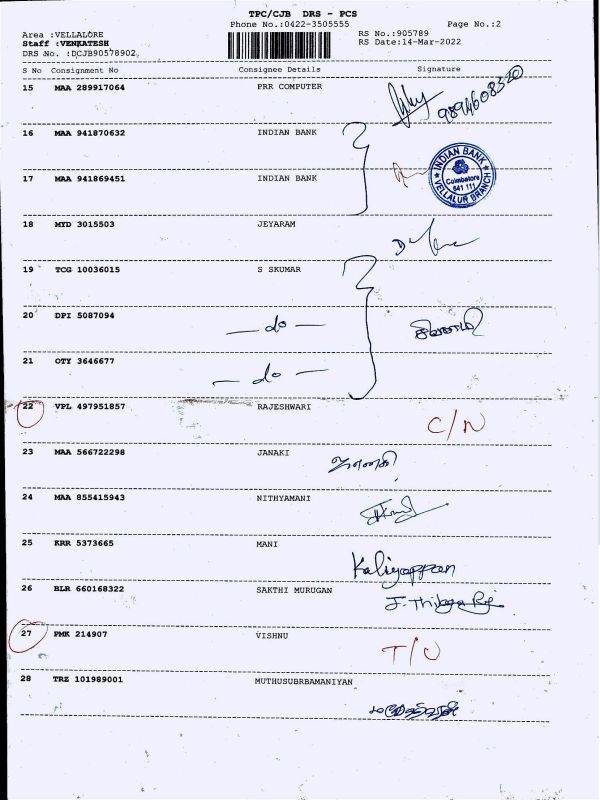 TPC/CJB DRS - PCS
Phone No.:0422-3505555 Page No.:2
Area :VELLALORE RS No.:905789
Staff :VENKATESH RS Date:14-Mar-2022
DRS No. :DCJB90578902
S No Consignment No Consignee Details Signature
15 MAA 289917064 PRR COMPUTER 9894608320
16 MAA 941870632 INDIAN BANK
INDIAN BANK
Coimbatore
641 111
VELLALUR BRANCH
17 MAA 941869451 INDIAN BANK
18 MYD 3015503 JEYARAM
19 TCG 10036015 S SKUMAR
20 DPI 5087094
— do —
21 OTY 3646677
— do —
22 VPL 497951857 RAJESHWARI
C/N
23 MAA 566722298 JANAKI
ஜானகி
24 MAA 855415943 NITHYAMANI
25 KRR 5373665 MANI
Kaliyappan
26 BLR 660168322 SAKTHI MURUGAN
27 PMK 214907 VISHNU
T/O
28 TRZ 101989001 MUTHUSUBRBAMANIYAN